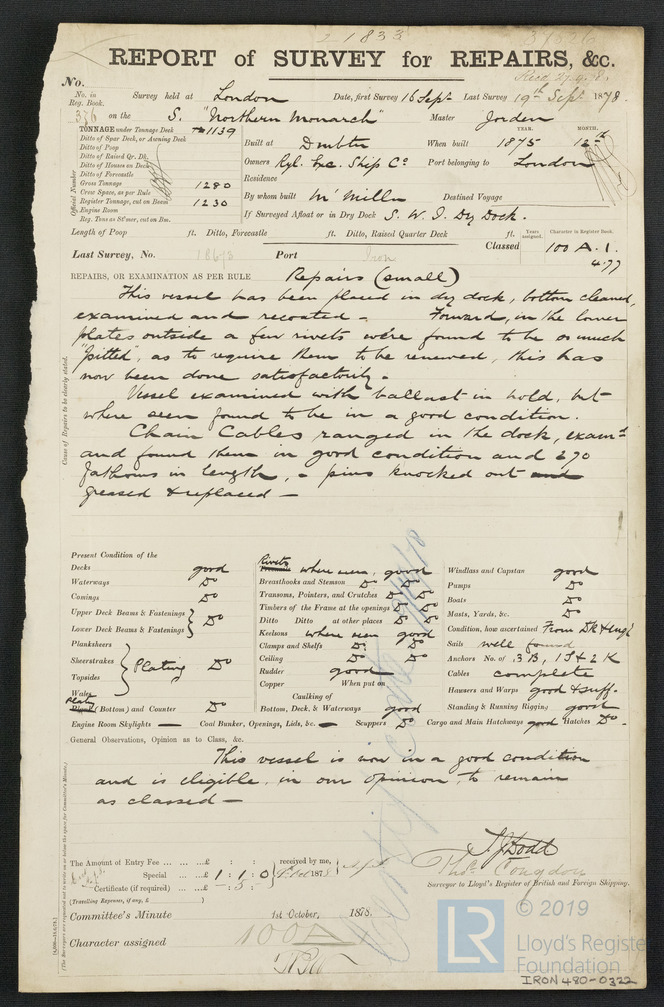 21833
REPORT of SURVEY for REPAIRS, &c.
No.
No. in Reg. Book. Survey held at London Date, first Survey 16 Sept Last Survey 19th Sept 1878.
376 on the S. "Northern Monarch" Master Jorden
TONNAGE under Tonnage Deck 1139
Ditto of Spar Deck, or Awning Deck
Ditto of Poop
Ditto of Raised Qr. Dk.
Ditto of Houses on Deck
Ditto of Forecastle
Gross Tonnage 1280
Crew Space, as per Rule
Register Tonnage, cut on Beam 1230
Engine Room
Reg. Tons as St'mer, cut on Bm.
Official Number
YEAR. MONTH.
Built at Dmbtn When built 1875 12th
Owners Ryl. Exc. Ship Co Port belonging to London
Residence
By whom built McMilln Destined Voyage
If Surveyed Afloat or in Dry Dock S. W. I. Dry Dock.
Length of Poop ft. Ditto, Forecastle ft. Ditto, Raised Quarter Deck ft.
Years assigned. Character in Register Book.
Classed 100 A. 1.
4.77
Last Survey, No. Port Iron
REPAIRS, OR EXAMINATION AS PER RULE Repairs (small)
This vessel has been placed in dry dock, bottom cleaned,
examined and recoated - Forward, in the lower
plates outside a few rivets were found to be so much
"pitted", as to require them to be renewed, this has
now been done satisfactorily.
Vessel examined with ballast in hold, but
where seen found to be in a good condition.
Chain Cables ranged in the dock, examd
and found them in good condition and 270
fathoms in length, - pins knocked out and
greased & replaced -
Cause of Repairs to be clearly stated.
Present Condition of the
Decks good
Waterways Do
Comings Do
Upper Deck Beams & Fastenings
Lower Deck Beams & Fastenings Do
Planksheers
Sheerstrakes
Topsides
Wales
Plating Do
Plates (Bottom) and Counter Do
Engine Room Skylights — Coal Bunker, Openings, Lids, &c. — Scuppers Do Cargo and Main Hatchways good Hatches Do.
Rivets where seen, good
Breasthooks and Stemson Do Do
Transoms, Pointers, and Crutches Do Do
Timbers of the Frame at the openings Do Do
Ditto Ditto at other places Do Do
Keelsons where seen good
Clamps and Shelfs Do Do
Ceiling Do Do
Rudder good
Copper When put on
Caulking of
Bottom, Deck, & Waterways good
Windlass and Capstan good
Pumps Do
Boats Do
Masts, Yards, &c. Do
Condition, how ascertained From Dk & engl
Sails well found
Anchors No. of 3 B, 1 S & 2 K
Cables complete
Hausers and Warps good & suff.
Standing & Running Rigging good
General Observations, Opinion as to Class, &c.
This vessel is now in a good condition
and is eligible, in our opinion, to remain
as classed -
The Amount of Entry Fee ... ... ...£ : : received by me,
Special ... ...£ 1 : 1 : 0
Certificate (if required) ... ...£ - : 5 : -
(Travelling Expenses, if any, £ )
T J Dodd
Thos. Congdon
Surveyor to Lloyd's Register of British and Foreign Shipping.
Committee's Minute 1st October, 1878.
Character assigned 100A
© 2019
LR
Lloyd's Register
Foundation
IRON480-0322